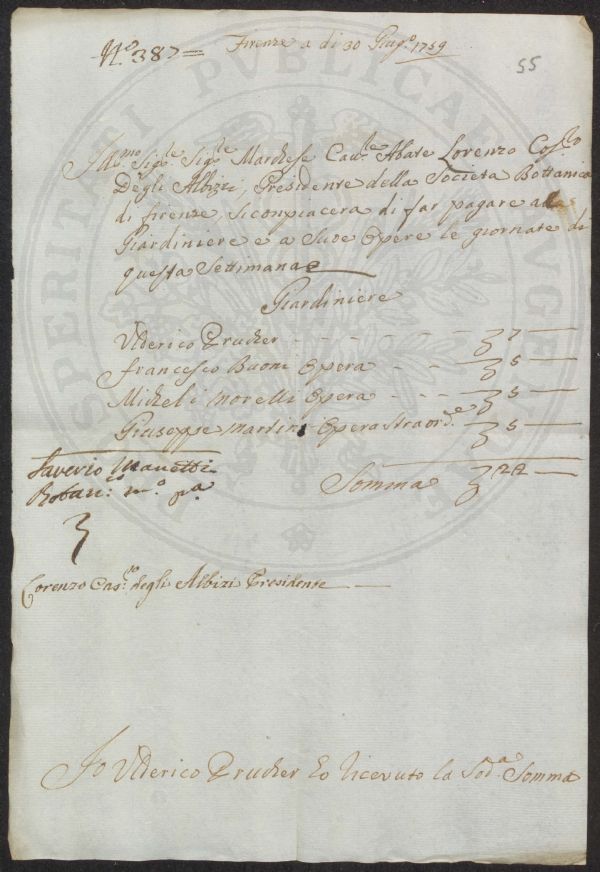 N.º 387 =
Firenze a di 30 Giug.º 1759
55
Ill.mo Sig.re Sig.re Marchese Cav.re Abate Lorenzo Cos.to
Degli Albizzi, Presidente della Societa Bottanica
di firenze, si conpiacera di far pagare al
Giardiniere e a Sue Opere le giornate di
questa Settimana
Giardiniere
Ulderico Prucher - - - - 7 —
Francesco Buoni Opera - - 5 —
Micheli Morelli Opera - - - 5 —
Giuseppe Martini Opera Straord.e 5 —
Saverio Manetti
Somma 22 —
Botan.co m.º p.a
Lorenzo Cas.to degli Albizi Presidente —
Io Ulderico Prucher ho ricevuto la Sod.a Somma
PROSPERITATI PUBLICAE AUGENDAE